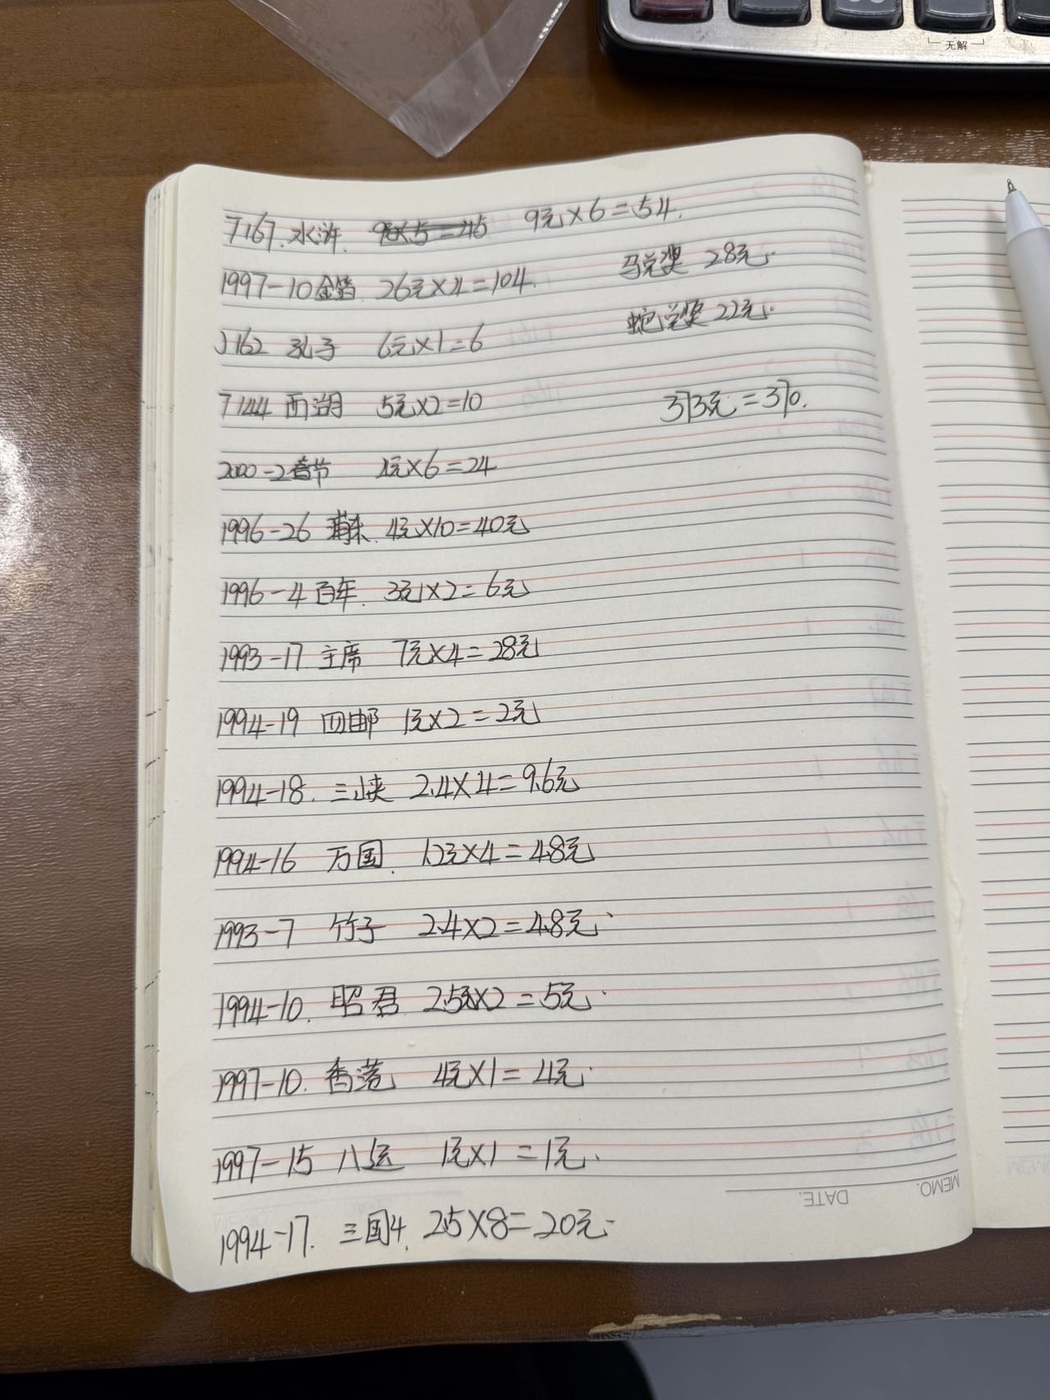 无解
T167. 水浒. 9元×5=45 9元×6=54.
马兑奖 28元.
1997-10金箔 26元×4=104.
蛇兑奖 22元.
J162 孔子 6元×1=6
T144 西湖 5元×2=10
373元=370.
2000-2春节 4元×6=24
1996-26 浦东. 4元×10=40元
1996-4 百年. 3元×2=6元
1993-17 主席 7元×4=28元
1994-19 四邮 1元×2=2元
1994-18. 三峡 2.4×4=9.6元
1994-16 万国. 1.2元×4=4.8元
1993-7 竹子 2.4×2=4.8元.
1994-10. 昭君 2.5元×2=5元.
1997-10. 香港 4元×1=4元.
1997-15 八运 1元×1=1元.
MEMO. DATE.
1994-17. 三国4. 2.5×8=20元.